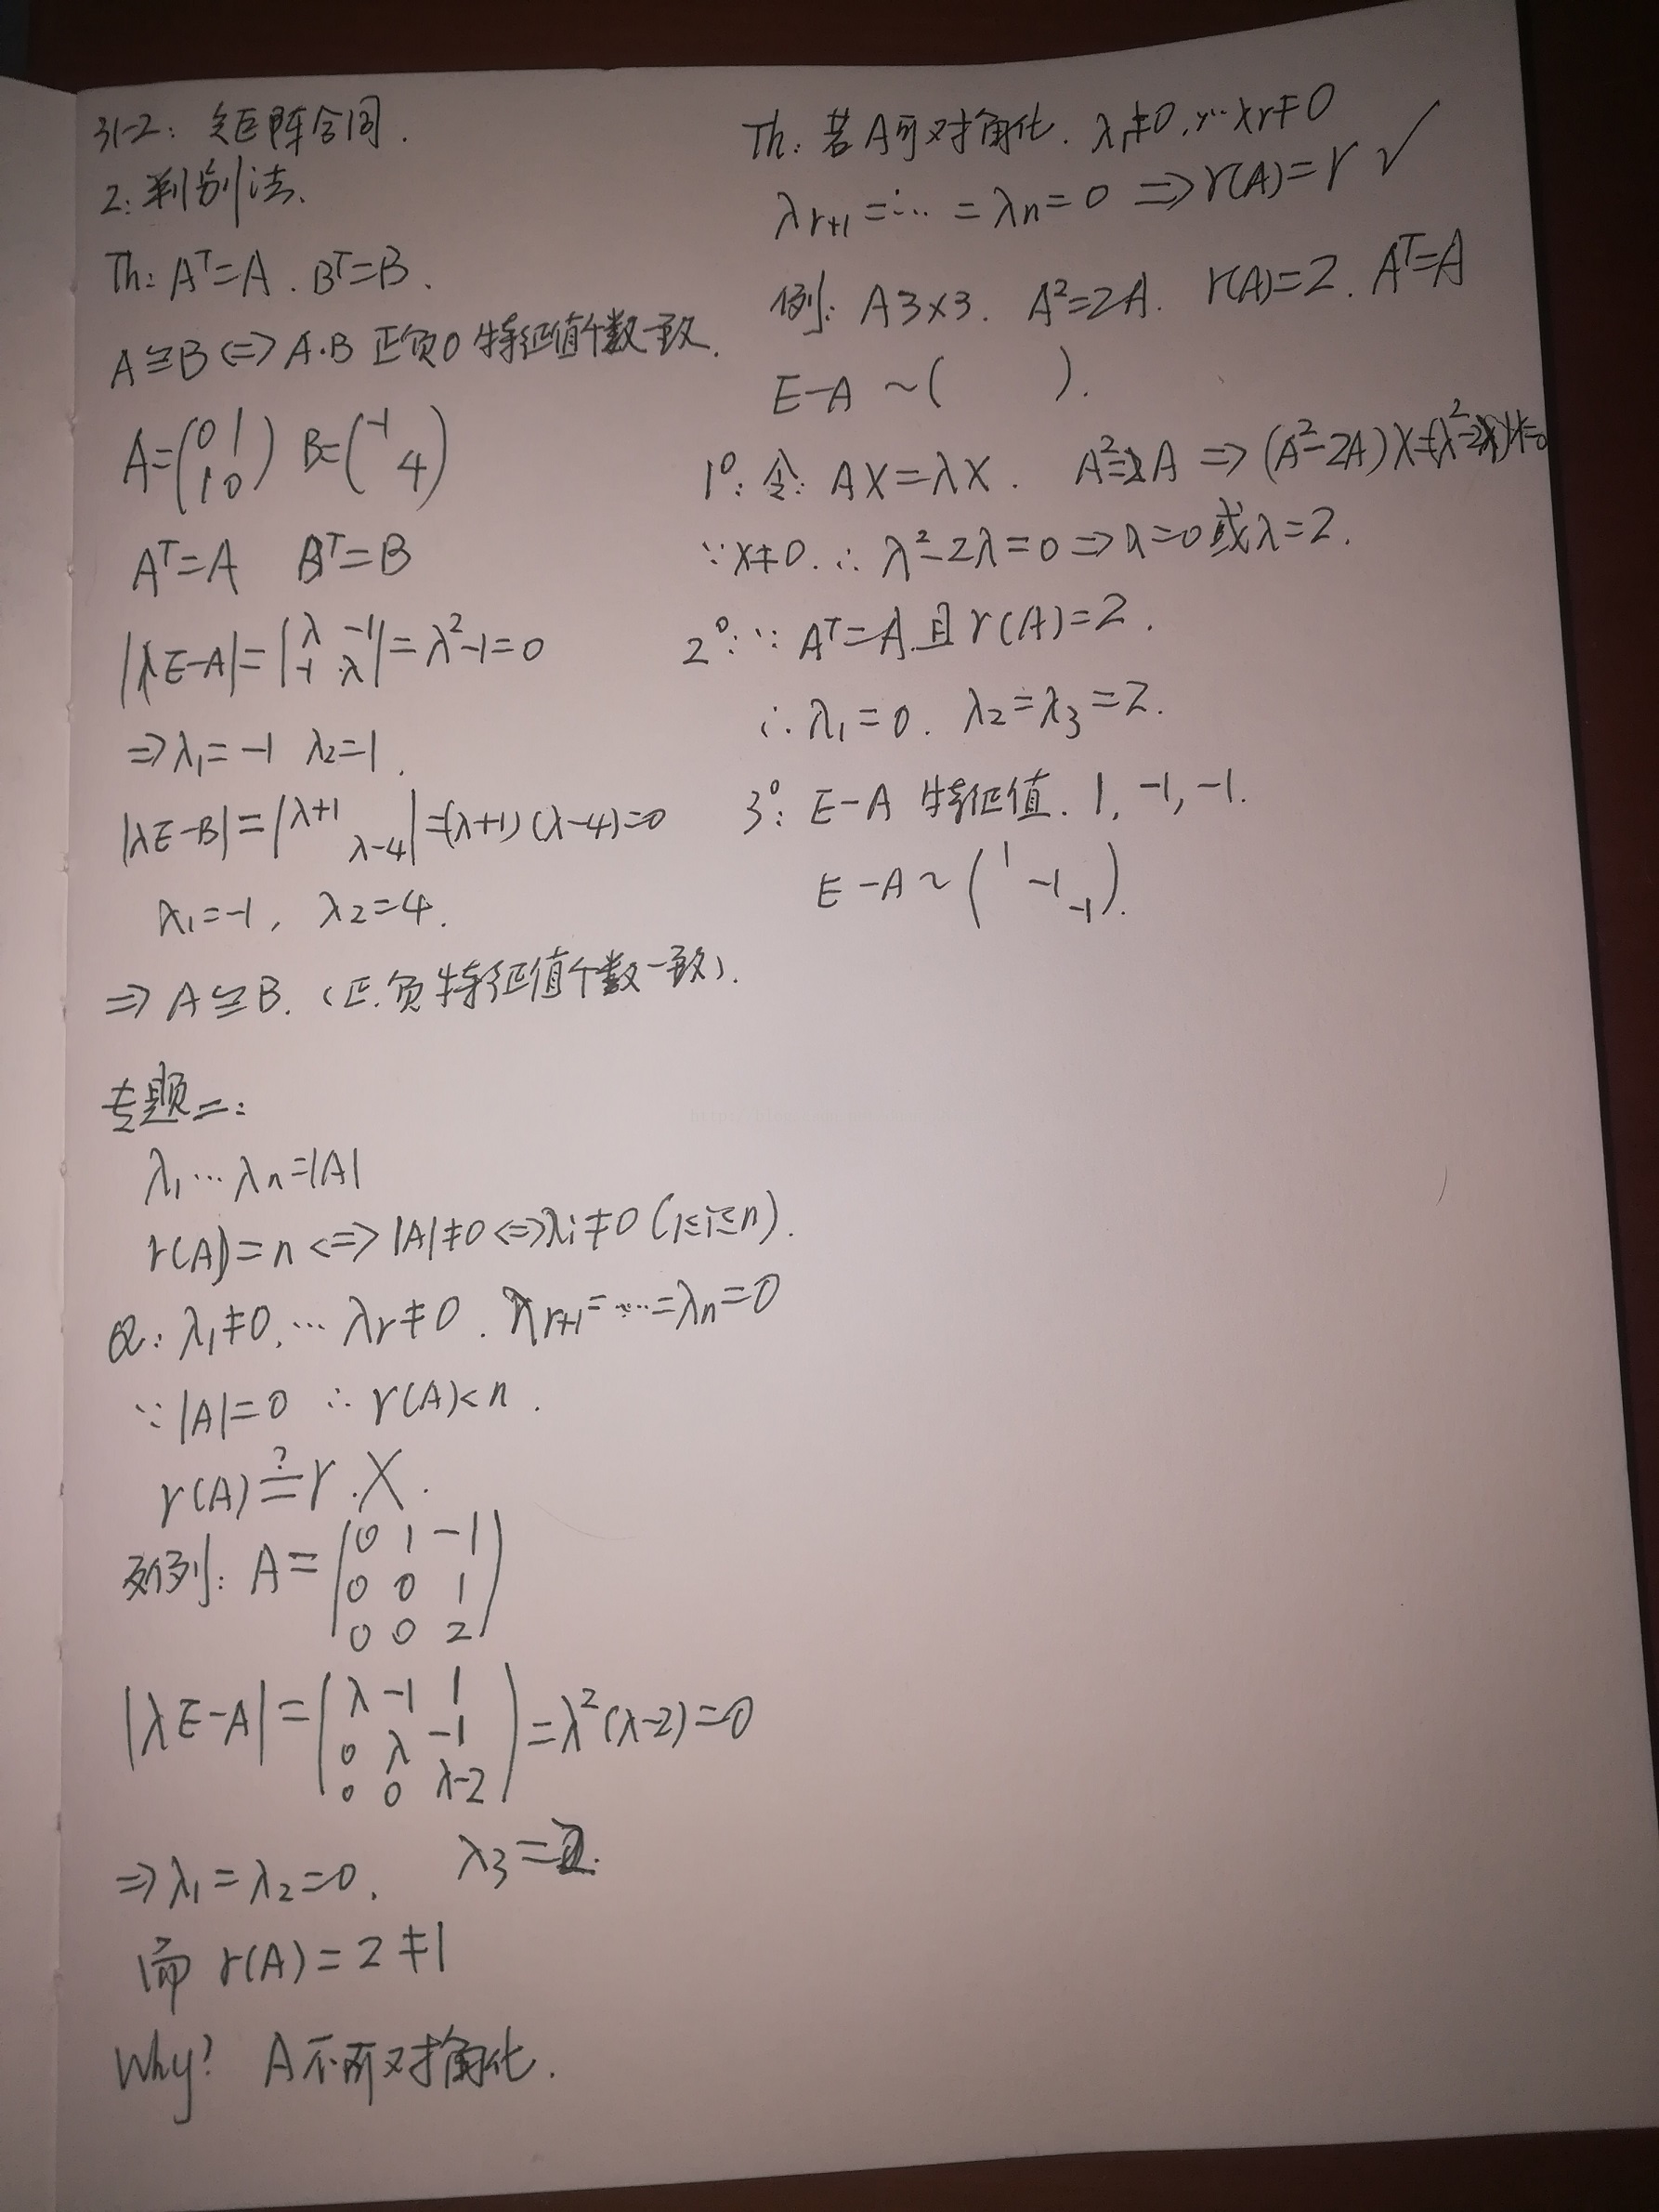 31-2: 矩阵合同.
2. 判别法.
Th: Aᵀ=A. Bᵀ=B.
A≌B ⇔ A.B 正负0特征值个数一致.
A=(0 1
1 0) B=(-1
4)
Aᵀ=A Bᵀ=B
|λE-A|=|λ -1
-1 λ|=λ²-1=0
⇒λ₁=-1 λ₂=1.
|λE-B|=|λ+1
λ-4|=(λ+1)(λ-4)=0
λ₁=-1, λ₂=4.
⇒ A≌B. (正.负特征值个数一致).
专题二:
λ₁…λn=|A|
r(A)=n⇔|A|≠0⇔λi≠0 (1≤i≤n).
Q: λ₁≠0,…λr≠0. λr+1=…=λn=0
∵|A|=0 ∴r(A)<n.
r(A)≟r.X.
例: A=(0 1 -1
0 0 1
0 0 2)
|λE-A|=(λ -1 1
0 λ -1
0 0 λ-2)=λ²(λ-2)=0
⇒λ₁=λ₂=0. λ₃=2.
而 r(A)=2≠1
Why? A不可对角化.
Th: 若A可对角化. λ₁≠0,…λr≠0
λr+1=…=λn=0 ⇒r(A)=r ✓
例: A3×3. A²=2A. r(A)=2. Aᵀ=A
E-A ~( ).
1°: 令: AX=λX. A²=2A ⇒ (A²-2A)X=(λ²-2λ)X=0
∵X≠0.∴λ²-2λ=0⇒λ=0或λ=2.
2°: ∵ Aᵀ=A.且r(A)=2.
∴λ₁=0. λ₂=λ₃=2.
3°: E-A 特征值. 1, -1, -1.
E-A~(1
-1
-1).